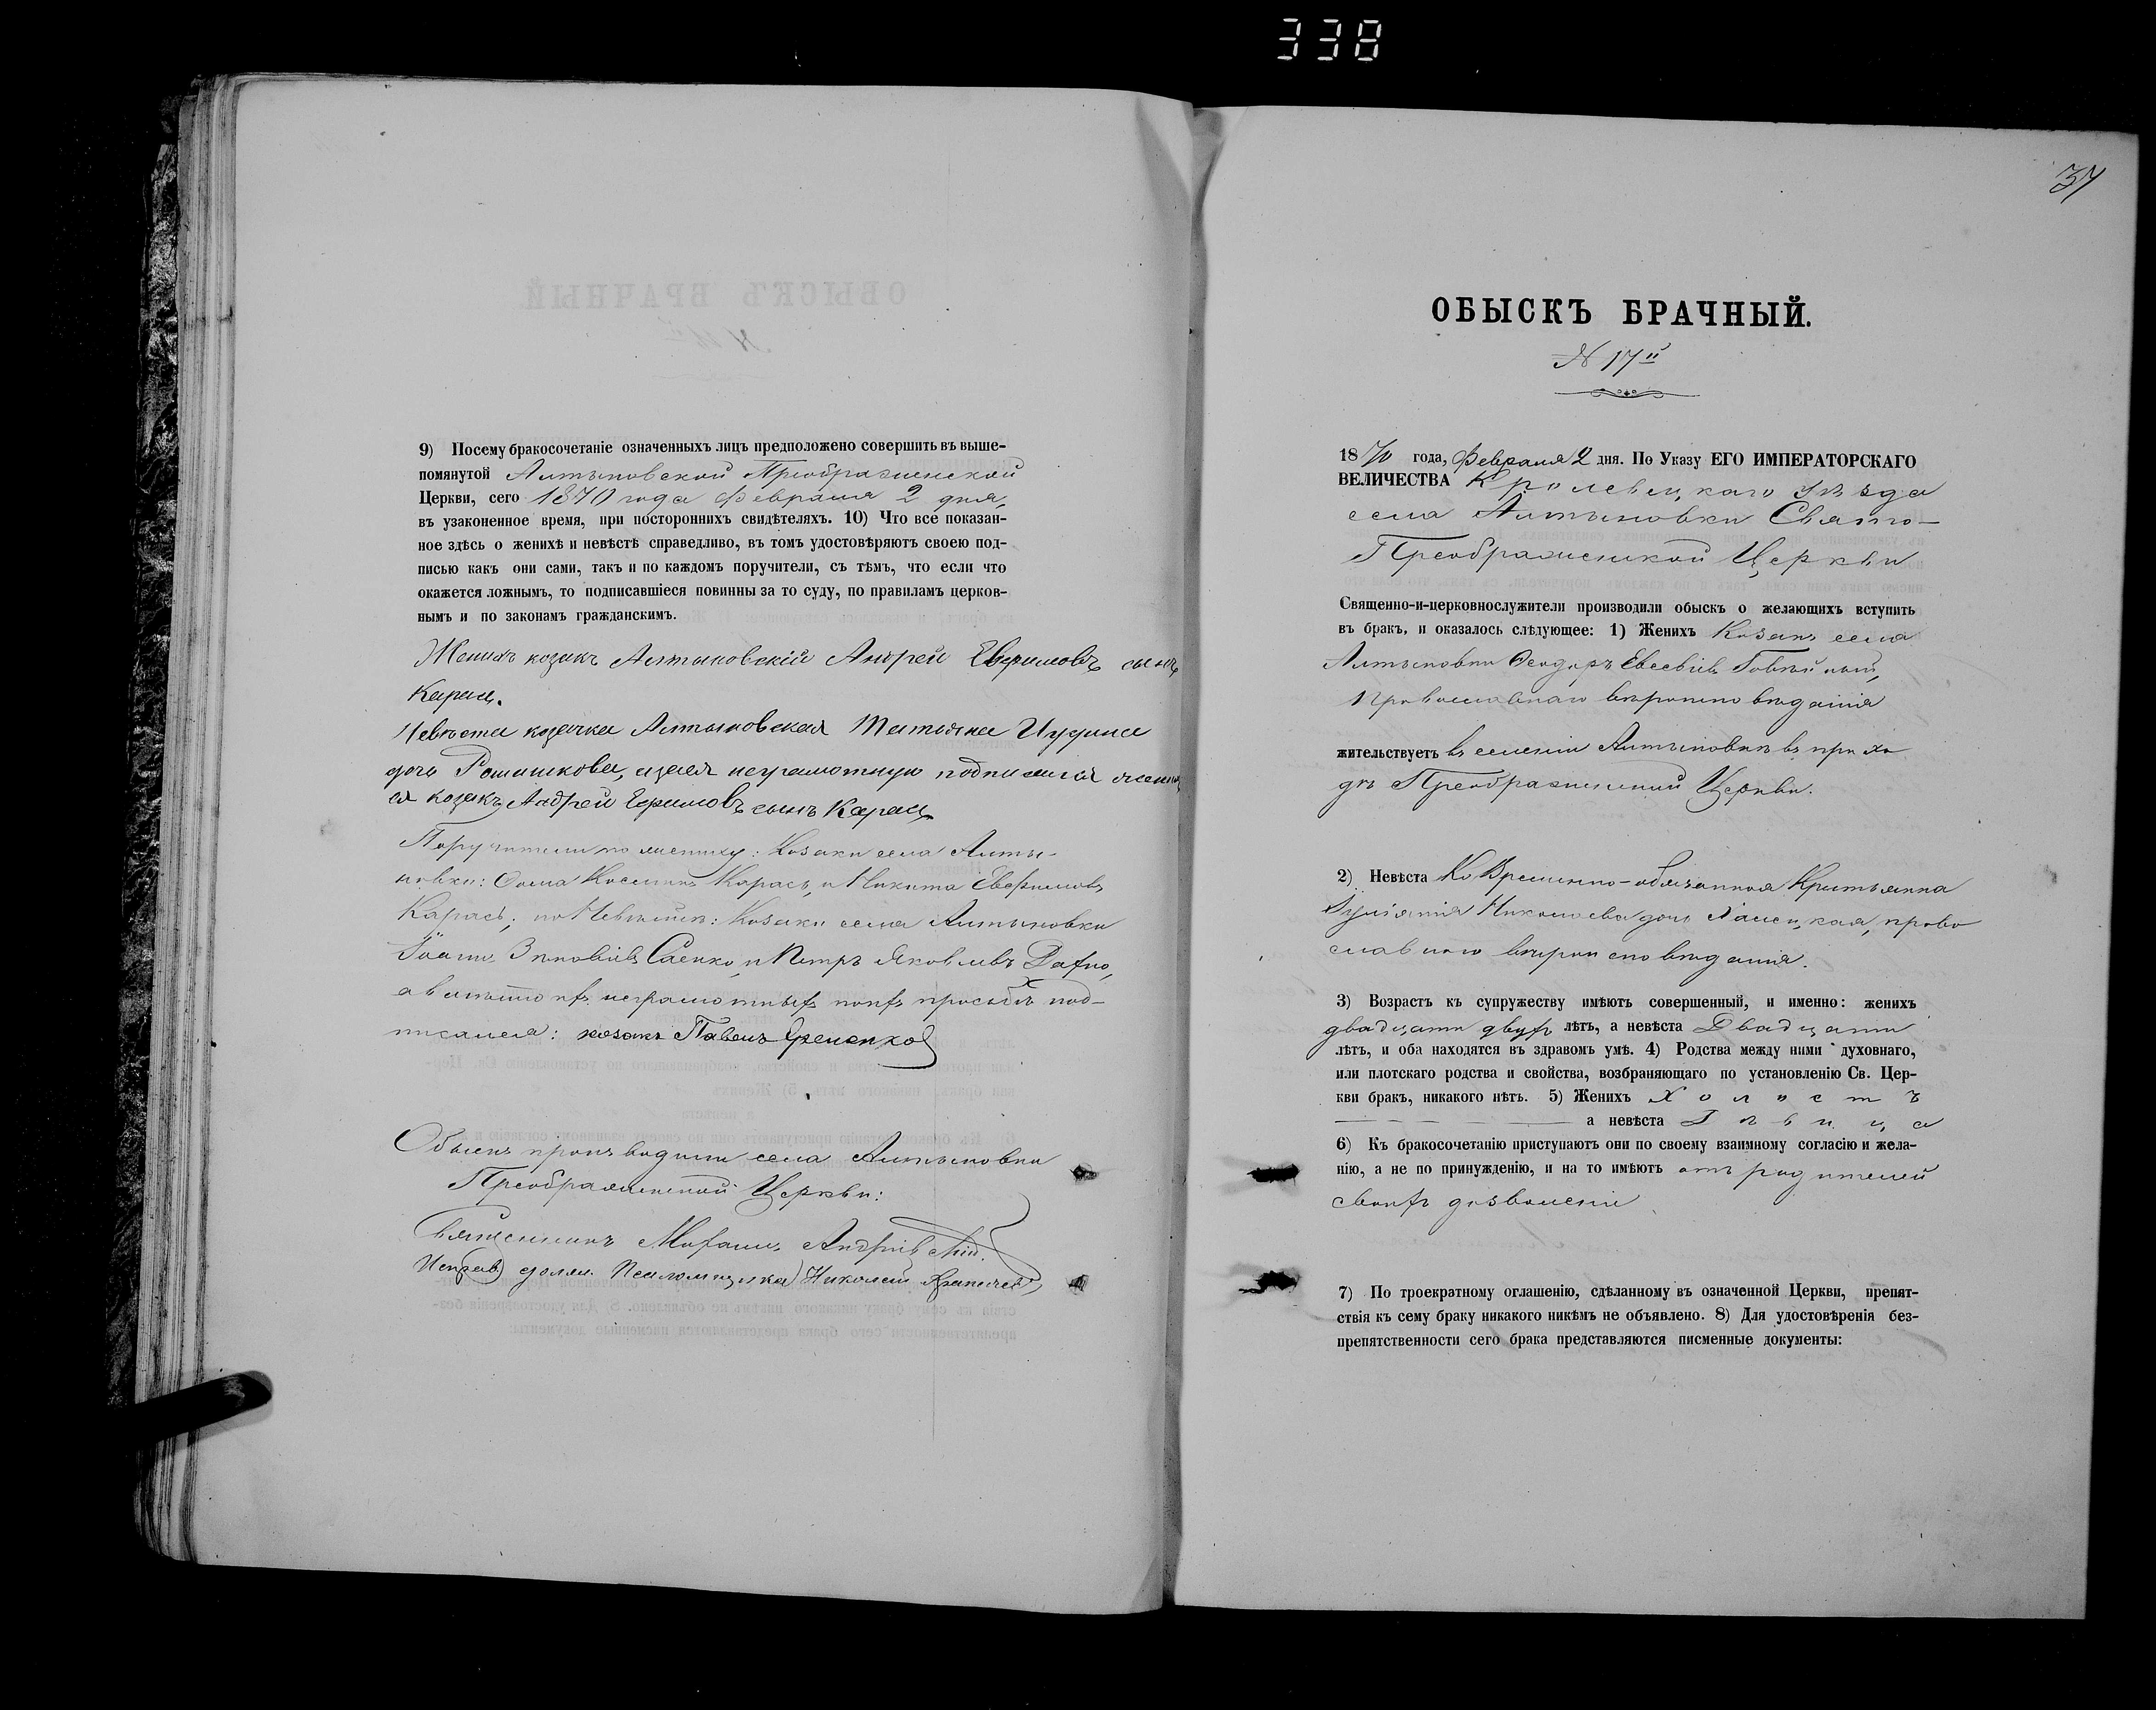 338
9) Посему бракосочетаніе означенныхъ лицъ предположено совершить въ выше-
помянутой Алтыновской Преображенской
Церкви, сего 1870 года Февраля 2 дня,
въ узаконенное время, при постороннихъ свидѣтеляхъ. 10) Что все показан-
ное здѣсь о женихѣ и невѣстѣ справедливо, въ томъ удостовѣряютъ своею под-
писью какъ они сами, такъ и по каждомъ поручители, съ тѣмъ, что если что
окажется ложнымъ, то подписавшіеся повинны за то суду, по правиламъ церков-
нымъ и по законамъ гражданскимъ.
Женихъ козакъ Алтыновскій Андрей Евфимовъ сынъ
Карась.
Невѣста козачка Алтыновская Татьяна
дочь Ромашкова, а за ея неграмотную подписался
козакъ Андрей Ефимовъ сынъ Карась
Поручители по жениху: Козаки села Алты-
новки: Ѳома Космовъ Карась, и Никита Евфимовъ
Карась; по Невѣстѣ: Козаки села Алтыновки
Іоаннъ Зиновіевъ Саенко, и Петръ Яковлевъ Дахно,
а вмѣсто ихъ неграмотныхъ по ихъ прозьбѣ под-
писался: козакъ Павелъ
Обыскъ производили села Алтыновки
Преображенской Церкви:
Священникъ Михаилъ
Испр. должн. Псаломщика Николай
37
ОБЫСКЪ БРАЧНЫЙ.
N 17й
1870 года, Февраля 2 дня. По Указу ЕГО ИМПЕРАТОРСКАГО
ВЕЛИЧЕСТВА Кролевецкаго уѣзда
села Алтыновки Свято-
Преображенской Церкви
Священно-и-церковнослужители производили обыскъ о желающихъ вступить
въ бракъ, и оказалось слѣдующее: 1) Женихъ Козакъ села
Алтыновки Ѳеодоръ Евсевіевъ
Православнаго вѣроисповѣданія
жительствуетъ въ селеніи Алтыновкѣ въ прихо
дѣ Преображенской Церкви.
2) Невѣста Временно-обязанная Крестьянка
Іуліанія Николаева дочь правo
славнаго вѣроисповѣданія.
3) Возрастъ къ супружеству имѣютъ совершенный, и именно: женихъ
двадцати двухъ лѣтъ, а невѣста Двадцати
лѣтъ, и оба находятся въ здравомъ умѣ. 4) Родства между ними духовнаго,
или плотскаго родства и свойства, возбраняющаго по установленію Св. Цер-
кви бракъ, никакого нѣтъ. 5) Женихъ Холостъ
а невѣста Дѣвица
6) Къ бракосочетанію приступаютъ они по своему взаимному согласію и жела-
нію, а не по принужденію, и на то имѣютъ отъ родителей
своихъ дозволеніе
7) По троекратному оглашенію, сдѣланному въ означенной Церкви, препят-
ствія къ сему браку никакого никѣмъ не объявлено. 8) Для удостовѣренія без-
препятственности сего брака представляются писменные документы: